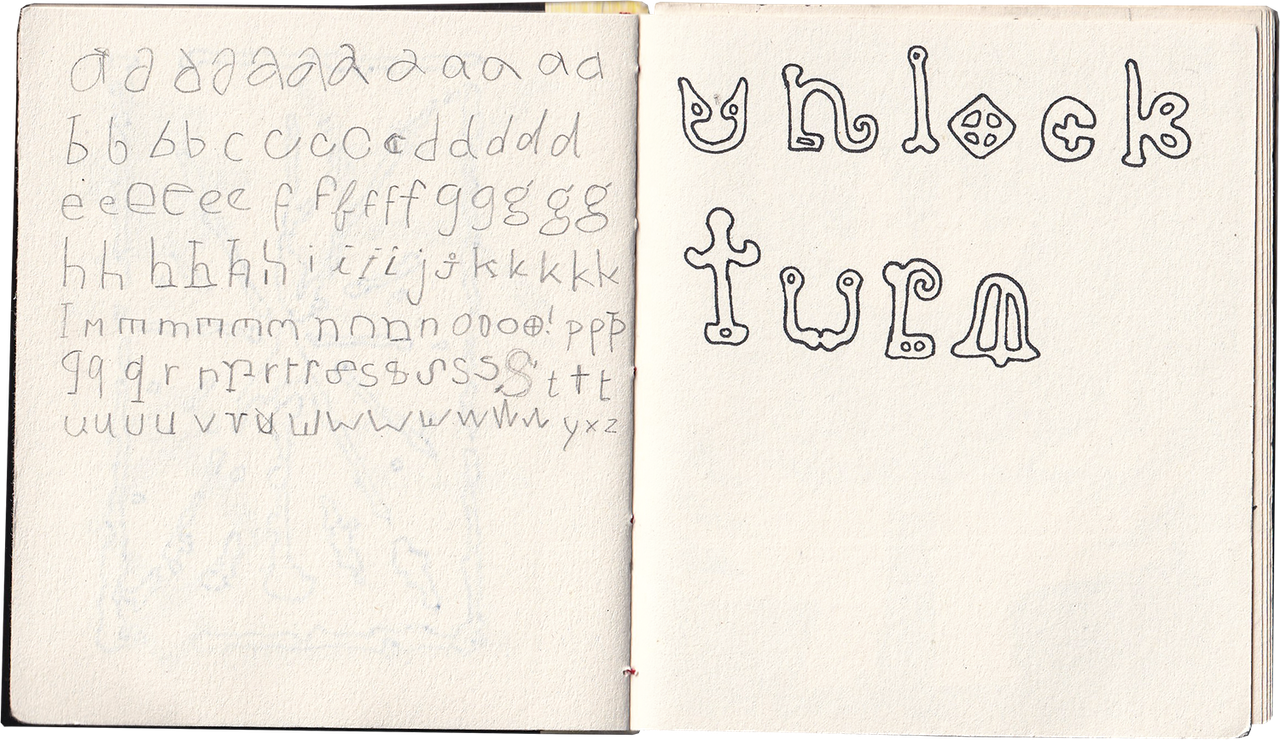 a a a a a a a a a a a a
b b b b c c c c c d d d d d
e e e e e e f f f f f f g g g g g
h h h h h h i i i i j j k k k k k
I m m m m m m n n n n o o o o ! p p p
q q q r n r r t r s s s s s s S t t t
u u u u v v v w w w w w w w y x z
unlock
turn